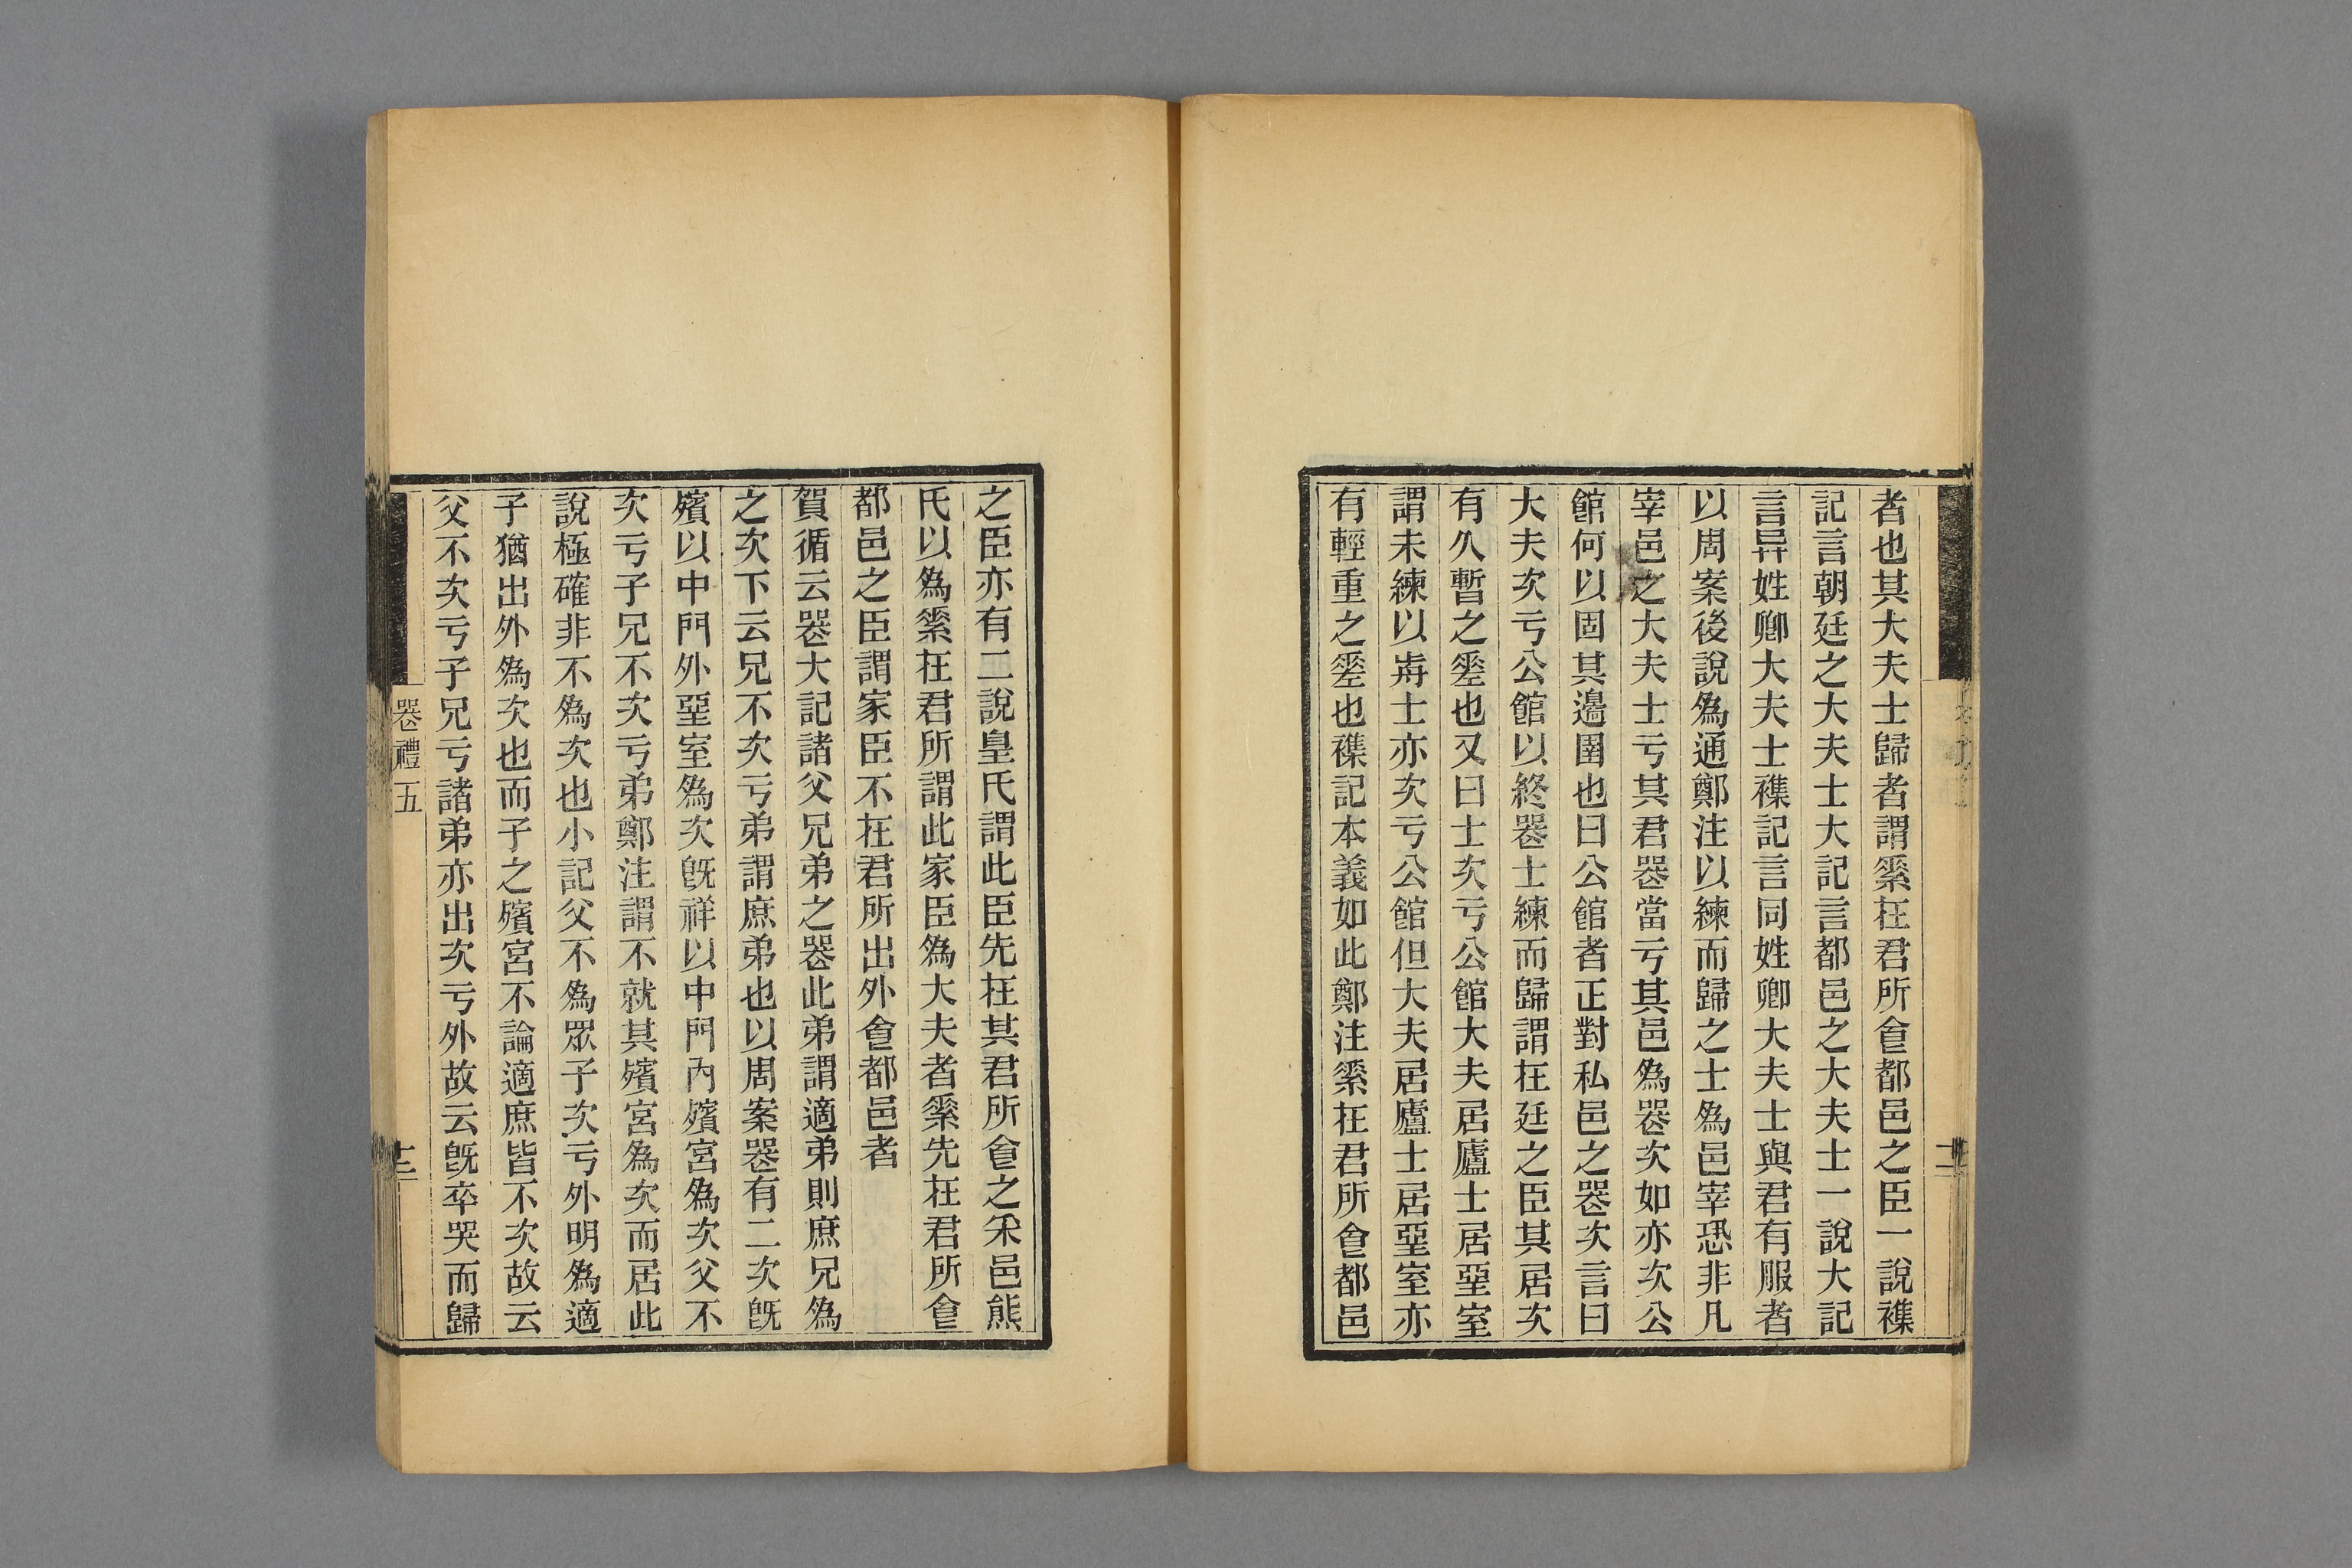 者也其大夫士歸者謂絫在君所食都邑之臣一說襍
記言朝廷之大夫士大記言都邑之大夫士一說大記
言异姓卿大夫士襍記言同姓卿大夫士與君有服者
以周案後說為通鄭注以練而歸之士為邑宰恐非凡
宰邑之大夫士亏其君器當亏其邑為器次如亦次公
館何以固其邊圉也曰公館者正對私邑之器次言曰
大夫次亏公館以終器士練而歸謂在廷之臣其居次
有久暫之𨤲也又曰士次亏公館大夫居廬士居堊室
謂未練以歬士亦次亏公館但大夫居廬士居堊室亦
有輕重之𨤲也襍記本義如此鄭注絫在君所食都邑
之臣亦有二說皇氏謂此臣先在其君所食之采邑熊
氏以為絫在君所謂此家臣為大夫者絫先在君所食
都邑之臣謂家臣不在君所出外食都邑者
賀循云器大記諸父兄弟之器此弟謂適弟則庶兄為
之次下云兄不次亏弟謂庶弟也以周案器有二次旣
殯以中門外堊室為次旣祥以中門內殯宮為次父不
次亏子兄不次亏弟鄭注謂不就其殯宮為次而居此
說極確非不為次也小記父不為眾子次亏外明為適
子猶出外為次也而子之殯宮不論適庶皆不次故云
父不次亏子兄亏諸弟亦出次亏外故云旣卒哭而歸
器禮五
十二